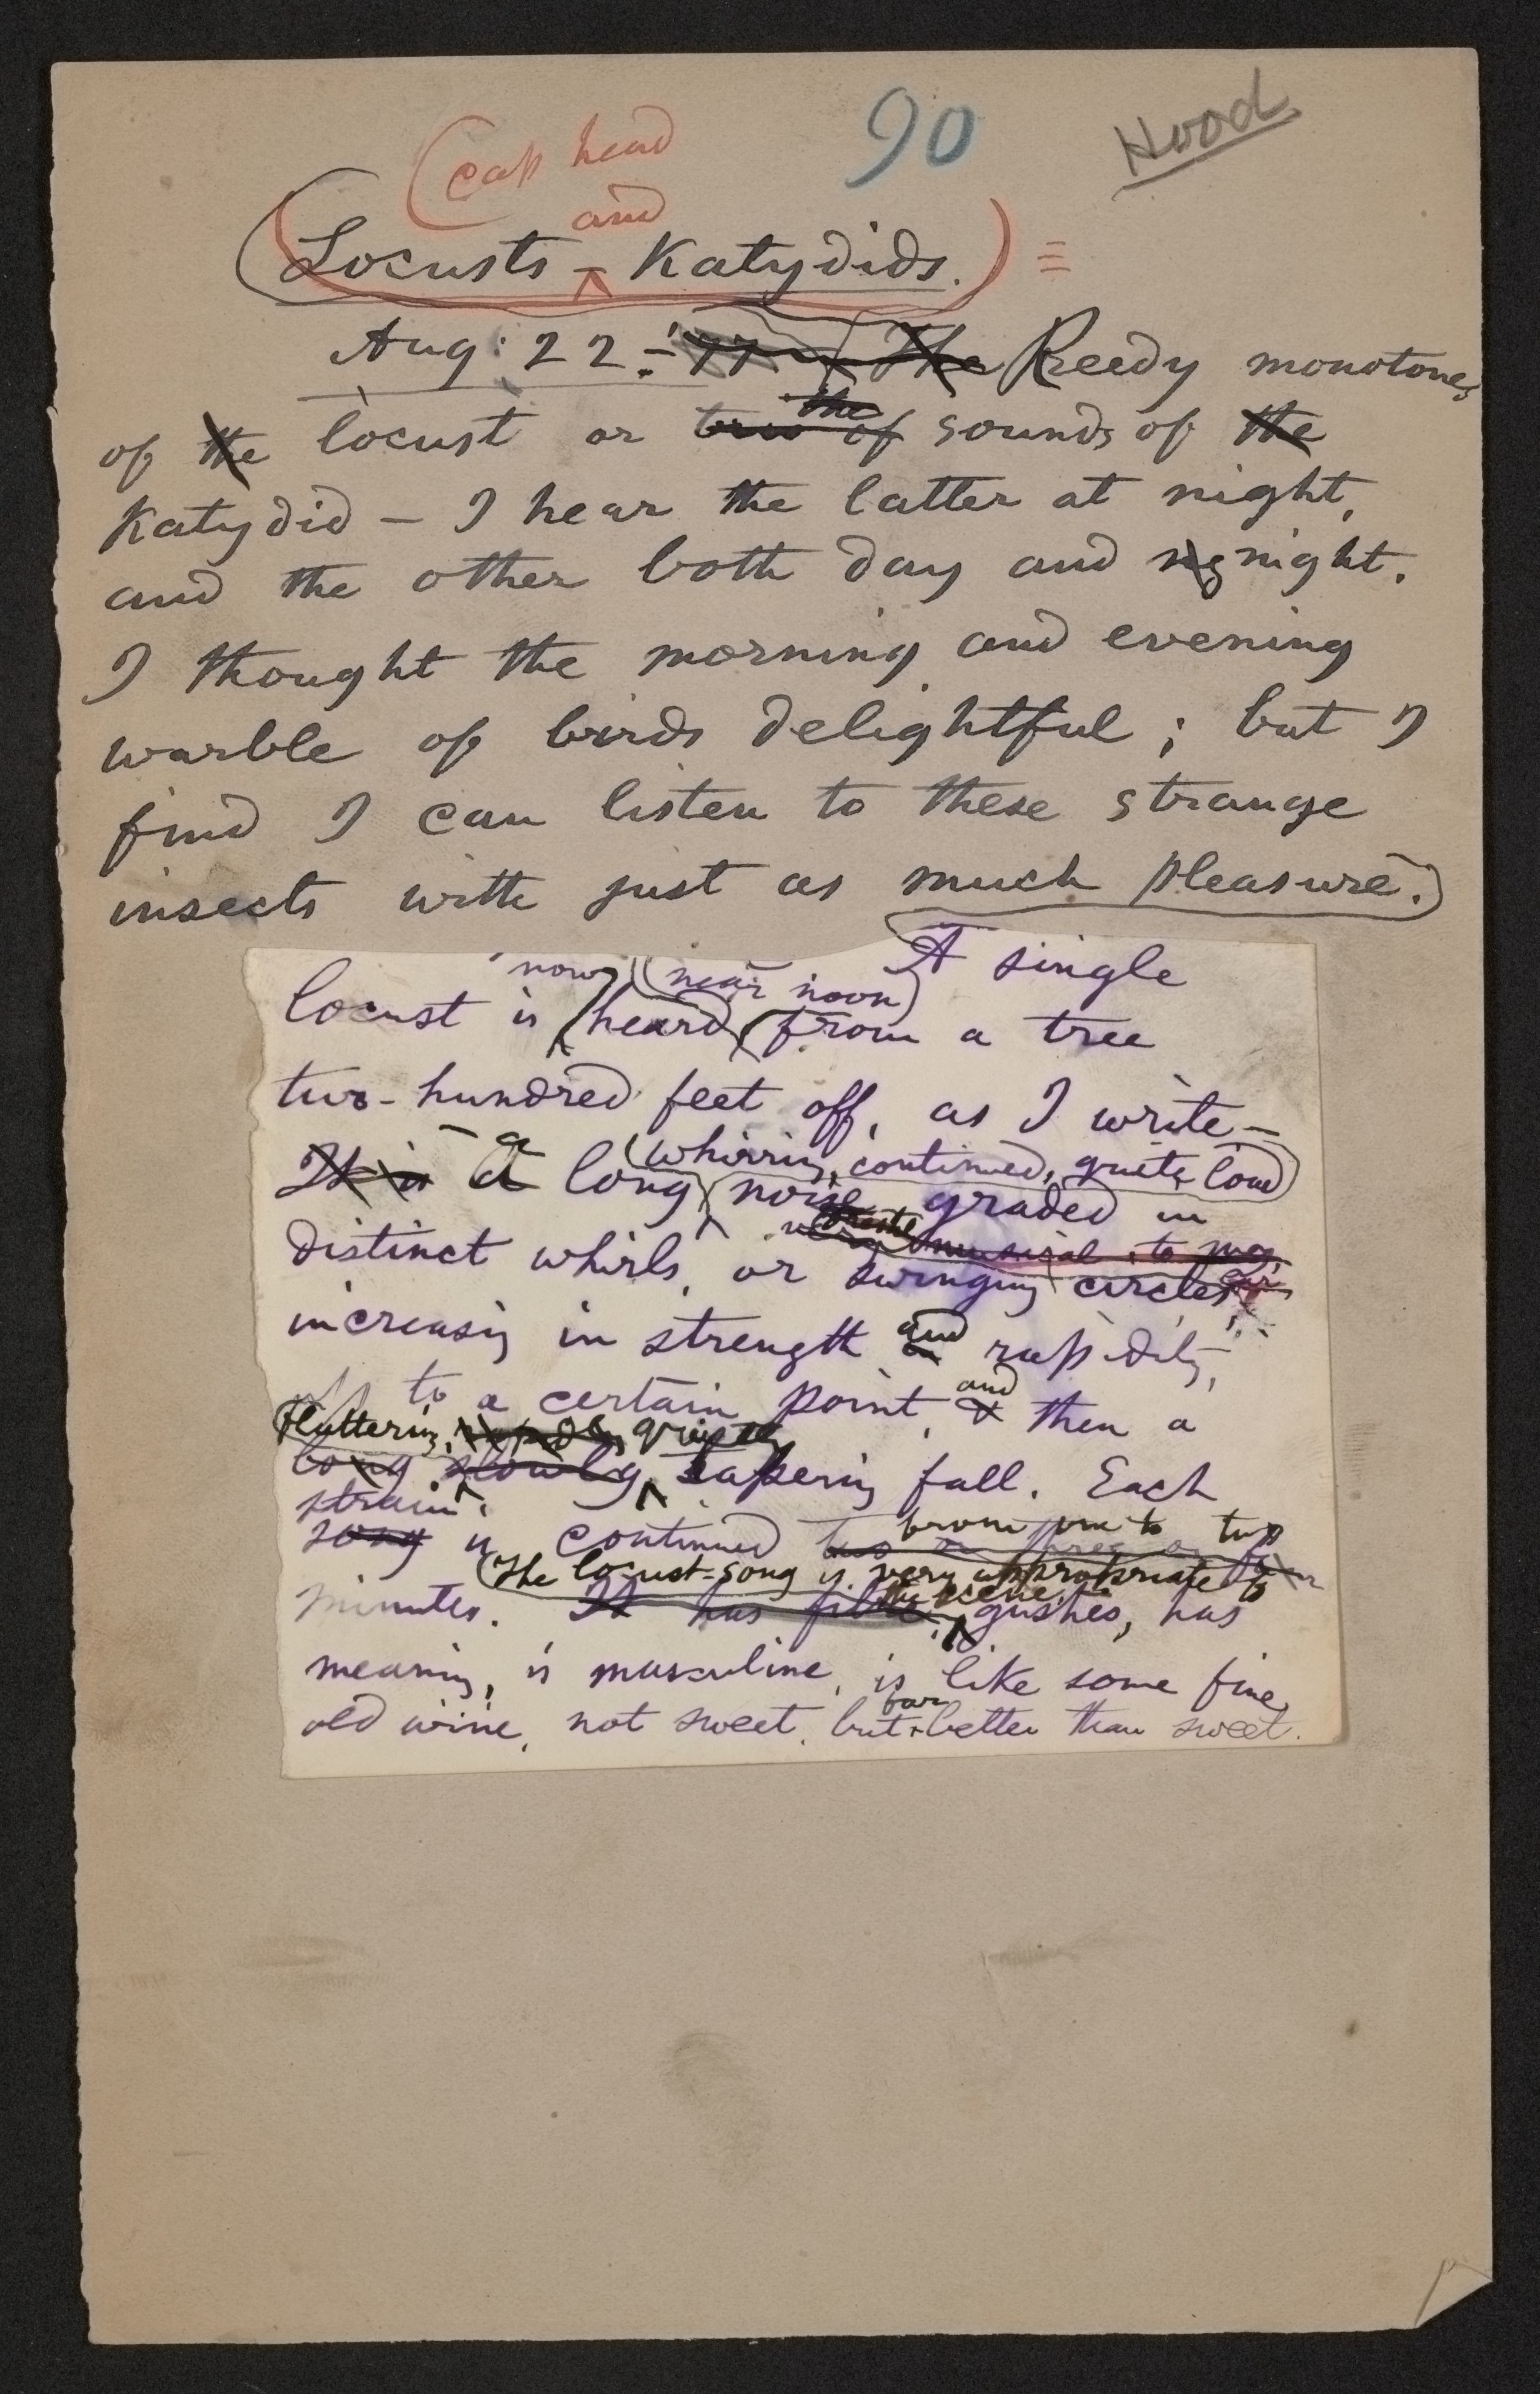 90
Hood
(cap head
and
(Locusts - Katydids.)
Aug: 22.-'77 - The Reedy monotones
the
of the locust or of sounds of the
Katydid – I hear the latter at night,
and the other both day and nig night.
I thought the morning and evening
warble of birds delightful; but I
find I can listen to these strange
insects with just as much pleasure.
A single
now (near noon)
locust is heard from a tree
two-hundred feet off, as I write –
– a (whirring, continued, quite loud)
It is A long noise graded in
very musical to my ear
distinct whirls, or swinging circles,
increasing in strength and rapidity,
up to a certain point, and then a
fluttering, quietly
long slowly tapering fall. Each
strain
from one to two
song is continued
(The locust-song is very appropriate to
the scene
minutes. It has gushes, has
meaning, is masculine, is like some fine
far
old wine, not sweet, but better than sweet.